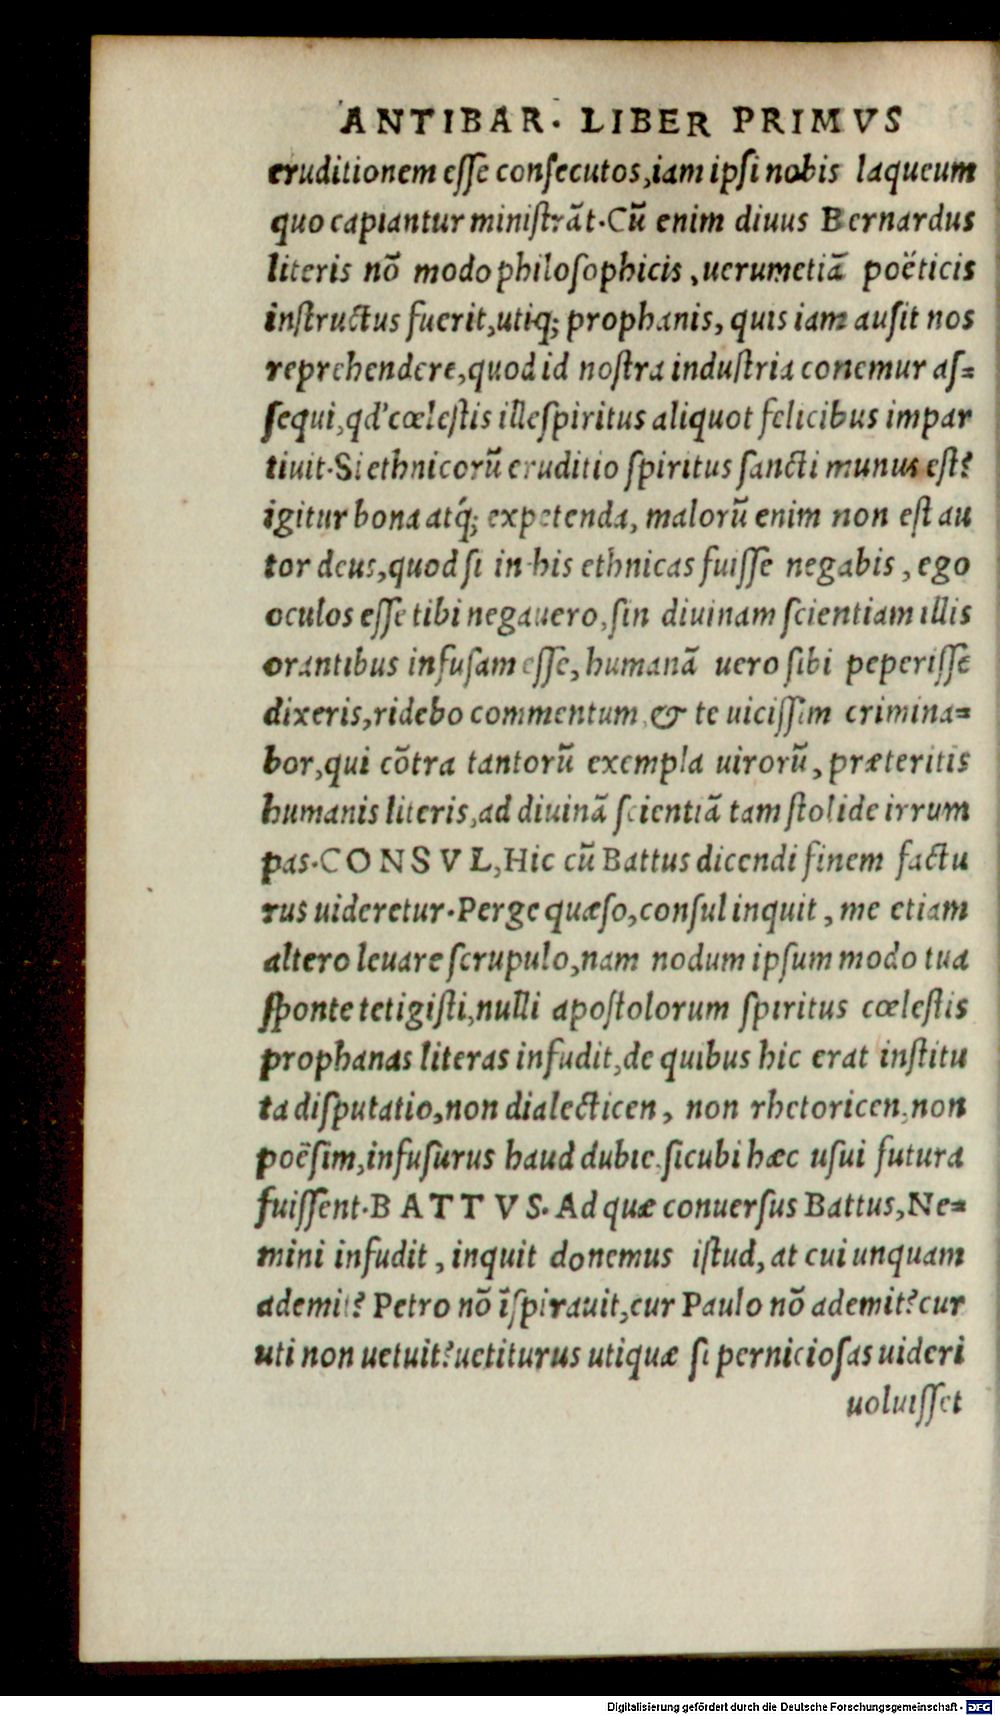 ANTIBAR. LIBER PRIMVS
eruditionem eſſe conſecutos, iam ipſi nobis laqueum
quo capiantur miniſtrãt. Cũ enim diuus Bernardus
literis nõ modo philoſophicis, uerumetiã poëticis
inſtructus fuerit, utiq; prophanis, quis iam auſit nos
reprehendere, quod id noſtra induſtria conemur aſ=
ſequi, qd' cœleſtis ille ſpiritus aliquot felicibus impar
tiuit. Si ethnicorũ eruditio ſpiritus ſancti munus eſt?
igitur bona atq́; expetenda, malorũ enim non eſt au
tor deus, quod ſi in his ethnicas fuiſſe negabis, ego
oculos eſſe tibi negauero, ſin diuinam ſcientiam illis
orantibus infuſam eſſe, humanã uero ſibi peperiſſe
dixeris, ridebo commentum, & te uiciſſim crimina=
bor, qui cõtra tantorũ exempla uirorũ, præteritis
humanis literis, ad diuinã ſcientiã tam ſtolide irrum
pas. CONSVL, Hic cũ Battus dicendi finem factu
rus uideretur. Perge quæſo, conſul inquit, me etiam
altero leuare ſcrupulo, nam nodum ipſum modo tua
ſponte tetigiſti, nulli apoſtolorum ſpiritus cœleſtis
prophanas literas infudit, de quibus hic erat inſtitu
ta diſputatio, non dialecticen, non rhetoricen, non
poëſim, infuſurus haud dubie, ſicubi hæc uſui futura
fuiſſent. BATTVS. Ad quæ conuerſus Battus, Ne=
mini infudit, inquit donemus iſtud, at cui unquam
ademit? Petro nõ ĩſpirauit, cur Paulo nõ ademit? cur
uti non uetuit? uetiturus utiquæ ſi pernicioſas uideri
uoluiſſet
Digitalisierung gefördert durch die Deutsche Forschungsgemeinschaft - DFG